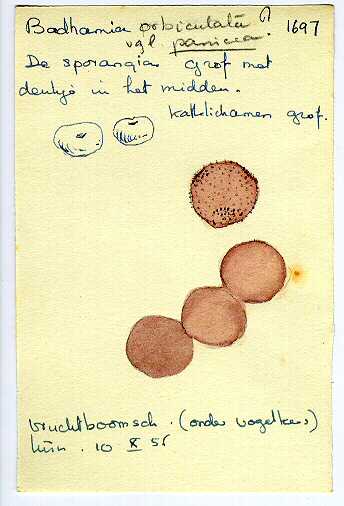 Badhamia orbiculata? 1697
vgl panicea
De sporangia grof met
deukje in het midden.
Kalklichamen grof.
Vruchtboomsch. (onder vogelkers)
tuin. 10 X 56